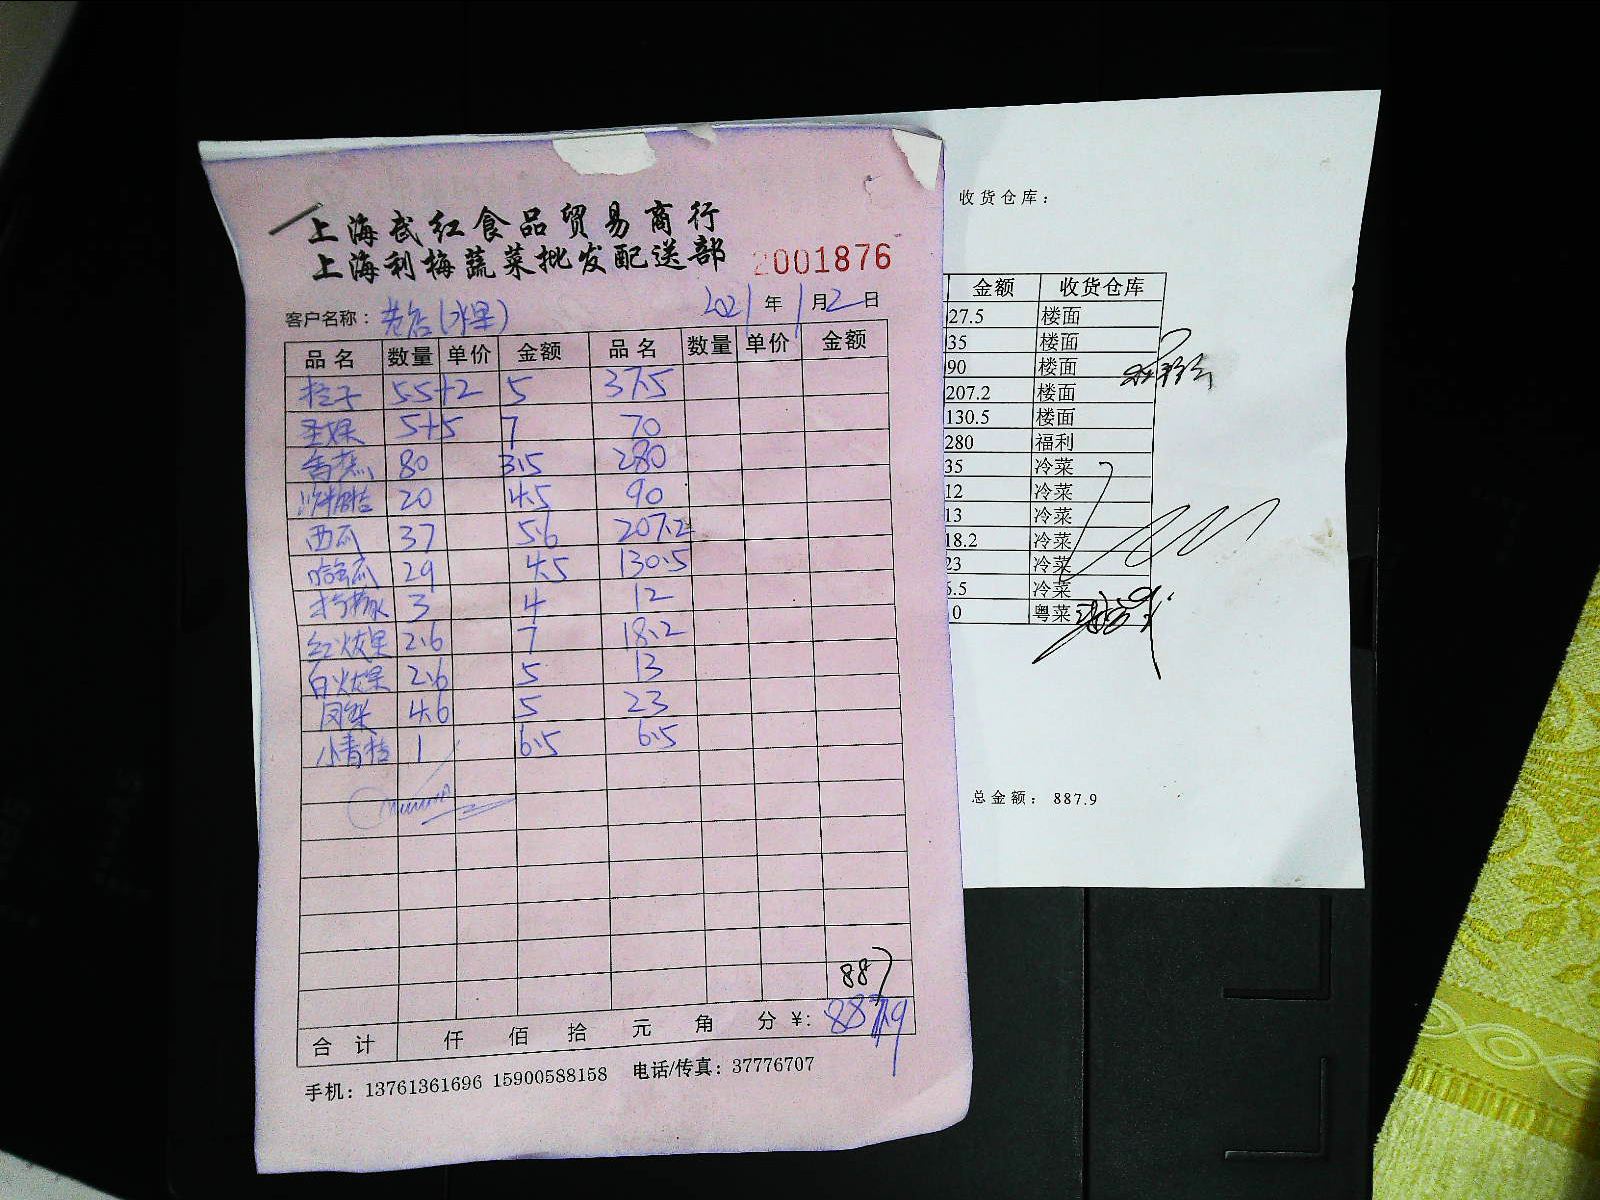 上海武红食品贸易商行
上海利梅蔬菜批发配送部
2001876
客户名称：老店(水果) 2021年1月2日
品名 数量 单价 金额 品名 数量 单价 金额
橙子 5.5+2 5 37.5
圣女果 5+5 7 70
香蕉 80 3.5 280
沙糖桔 20 4.5 90
西瓜 37 5.6 207.2
哈密瓜 29 4.5 130.5
3 4 12
红火龙果 2.6 7 18.2
白火龙果 2.6 5 13
凤梨 4.6 5 23
小青桔 1 6.5 6.5
887
合计 仟 佰 拾 元 角 分 ¥: 887.9
手机：13761361696 15900588158 电话/传真：37776707
收货仓库：
金额 收货仓库
27.5 楼面
35 楼面
90 楼面
207.2 楼面
130.5 楼面
280 福利
35 冷菜
12 冷菜
13 冷菜
18.2 冷菜
23 冷菜
6.5 冷菜
0 粤菜
总金额：887.9